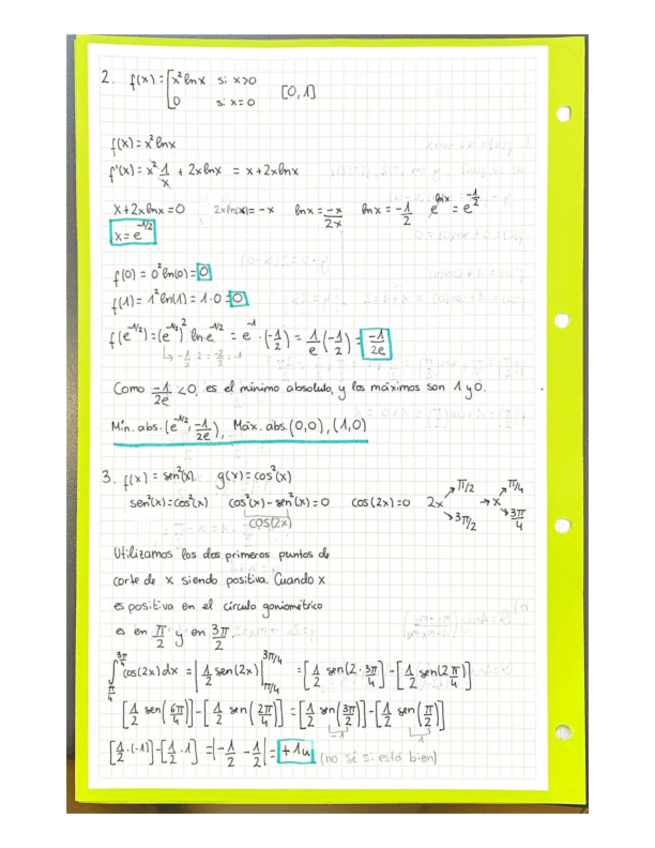 2. f(x) = [x² ln x si x>0
0 si x=0 [0,1]
f(x) = x² ln x
f'(x) = x² 1/x + 2x ln x = x + 2x ln x
x + 2x ln x = 0 2x ln(x) = -x ln x = -x/2x ln x = -1/2 e^lnx = e^-1/2
x = e^-1/2
f(0) = 0² ln(0) = 0
f(1) = 1² ln(1) = 1·0 = 0
f(e^-1/2) = (e^-1/2)² ln e^-1/2 = e^-1 · (-1/2) = 1/e (-1/2) = -1/2e
↳ -1/2 · 2 = -2/2 = -1
Como -1/2e < 0, es el mínimo absoluto, y los máximos son 1 y 0.
Mín. abs. (e^-1/2, -1/2e), Máx. abs. (0,0), (1,0)
3. f(x) = sen²(x). g(x) = cos²(x)
sen²(x) = cos²(x) cos²(x) - sen²(x) = 0 cos(2x) = 0 2x ↗ π/2 ↘ 3π/2 → x ↗ π/4 ↘ 3π/4
cos(2x)
Utilizamos los dos primeros puntos de
corte de x siendo positiva. Cuando x
es positiva en el círculo goniométrico
es en π/2 y en 3π/2.
∫ π/4 3π/4 cos(2x) dx = |1/2 sen(2x)| 3π/4 π/4 = [1/2 sen(2·3π/4)] - [1/2 sen(2π/4)]
[1/2 sen(6π/4)] - [1/2 sen(2π/4)] = [1/2 sen(3π/2)] - [1/2 sen(π/2)]
-1 1
[1/2 · (-1)] - [1/2 · 1] = |-1/2 - 1/2| = +1u (no sé si está bien)